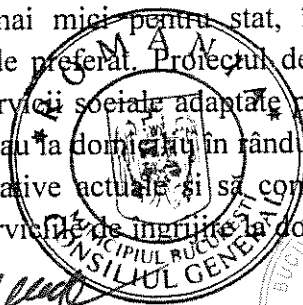 mai mici pentru stat,
de preferat. Proiectul de
servicii sociale adaptate
sau la domiciliu în rându
ative actuale și să con
serviciile de îngrijire la do
ROMÂNIA
MUNICIPIUL BUCUREȘTI
CONSILIUL GENERAL
BUC